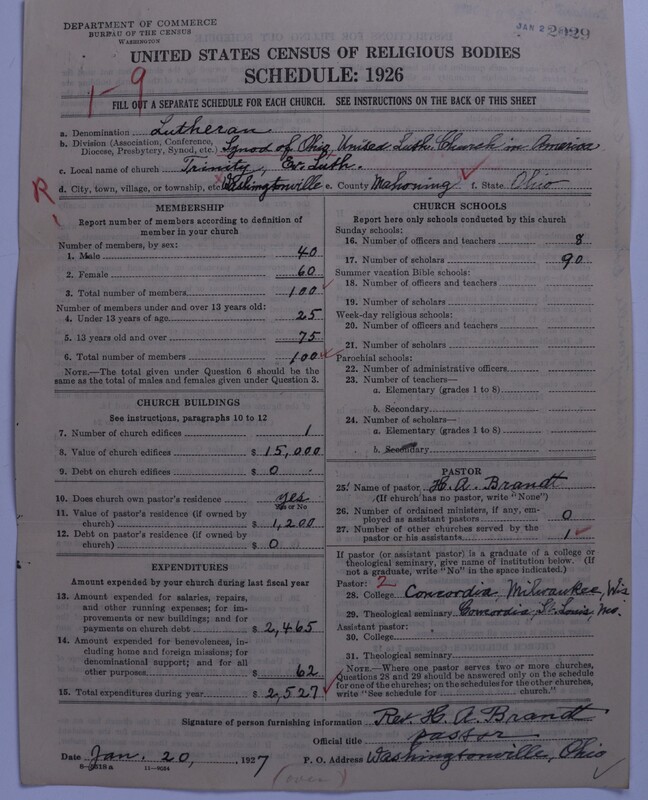 DEPARTMENT OF COMMERCE
BUREAU OF THE CENSUS
WASHINGTON
JAN 2 2029
UNITED STATES CENSUS OF RELIGIOUS BODIES
SCHEDULE: 1926
1-9
FILL OUT A SEPARATE SCHEDULE FOR EACH CHURCH. SEE INSTRUCTIONS ON THE BACK OF THIS SHEET
a. Denomination Lutheran
b. Division (Association, Conference, Diocese, Presbytery, Synod, etc.) Synod of Ohio, United Luth. Church in America
c. Local name of church Trinity, Ev. Luth.
R
d. City, town, village, or township, etc. Washingtonville e. County Mahoning f. State Ohio
MEMBERSHIP
Report number of members according to definition of
member in your church
Number of members, by sex:
1. Male 40
2. Female 60
3. Total number of members 100
Number of members under and over 13 years old:
4. Under 13 years of age 25
5. 13 years old and over 75
6. Total number of members 100
NOTE.—The total given under Question 6 should be the
same as the total of males and females given under Question 3.
CHURCH BUILDINGS
See instructions, paragraphs 10 to 12
7. Number of church edifices 1
8. Value of church edifices $ 15,000
9. Debt on church edifices $ 0
10. Does church own pastor's residence yes
Yes or No
11. Value of pastor's residence (if owned by
church) $ 1,200
12. Debt on pastor's residence (if owned by
church) $ 0
EXPENDITURES
Amount expended by your church during last fiscal year
13. Amount expended for salaries, repairs,
and other running expenses; for im-
provements or new buildings; and for
payments on church debt $ 2,465
14. Amount expended for benevolences, in-
cluding home and foreign missions; for
denominational support; and for all
other purposes $ 62
15. Total expenditures during year $ 2,527
CHURCH SCHOOLS
Report here only schools conducted by this church
Sunday schools:
16. Number of officers and teachers 8
17. Number of scholars 90
Summer vacation Bible schools:
18. Number of officers and teachers
19. Number of scholars
Week-day religious schools:
20. Number of officers and teachers
21. Number of scholars
Parochial schools:
22. Number of administrative officers
23. Number of teachers—
a. Elementary (grades 1 to 8)
b. Secondary
24. Number of scholars—
a. Elementary (grades 1 to 8)
b. Secondary
PASTOR
25. Name of pastor H. A. Brandt
(If church has no pastor, write "None")
26. Number of ordained ministers, if any, em-
ployed as assistant pastors 0
27. Number of other churches served by the
pastor or his assistants 1
If pastor (or assistant pastor) is a graduate of a college or
theological seminary, give name of institution below. (If
not a graduate, write "No" in the space indicated.)
Pastor: 2
28. College Concordia, Milwaukee, Wis
29. Theological seminary Concordia, St. Louis, Mo.
Assistant pastor:
30. College
31. Theological seminary
NOTE.—Where one pastor serves two or more churches,
Questions 28 and 29 should be answered only on the schedule
for one of the churches; on the schedules for the other churches,
write "See schedule for church."
Signature of person furnishing information Rev. H. A. Brandt
Official title pastor
Date Jan. 20, 1927 P. O. Address Washingtonville, Ohio
8-9318a 11-9054
(over)